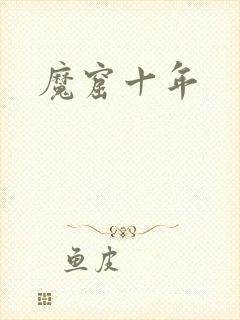 魔窟十年
鱼皮